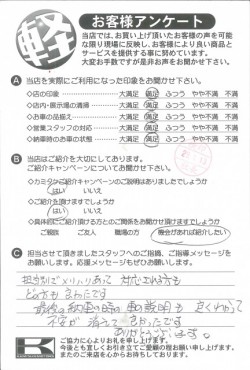 軽
お客様アンケート
当店では、お買い上げ頂いたお客様の声を可能
な限り現場に反映し、お客様により良い商品と
サービスを提供する事に努めています。
大変お手数ですが是非お声をお聞かせ下さい。
A 当店を実際にご利用になった印象をお聞かせ下さい。
◇店の印象 大満足 満足 ふつう やや不満 不満
◇店内・展示場の清掃 大満足 満足 ふつう やや不満 不満
◇お車の品揃え 大満足 満足 ふつう やや不満 不満
◇営業スタッフの対応 大満足 満足 ふつう やや不満 不満
◇納車時のお車の状態 大満足 満足 ふつう やや不満 不満
B 当店はご紹介を大切にしております。
ご紹介キャンペーンについてお聞かせ下さい。
◇カミタケご紹介キャンペーンのご説明はありましたでしょうか
はい いいえ
◇ご紹介キャンペーンにご協力頂けますでしょうか
はい いいえ
◇具体的にご紹介頂ける方とのご関係をお聞かせ頂けますでしょうか
ご親族 ご友人 職場の方 機会があれば紹介したい
C 担当させて頂きましたスタッフへのご指摘、ご指導メッセージを
お願いします。応援メッセージもぜひお願いします。
不安が消えて
ありがとうございます。
ご協力に心よりお礼を申し上げます。
今後とも宜しくお引き立てご愛顧の程お願い申し上げます。
またのご来店を心からお待ちしております。